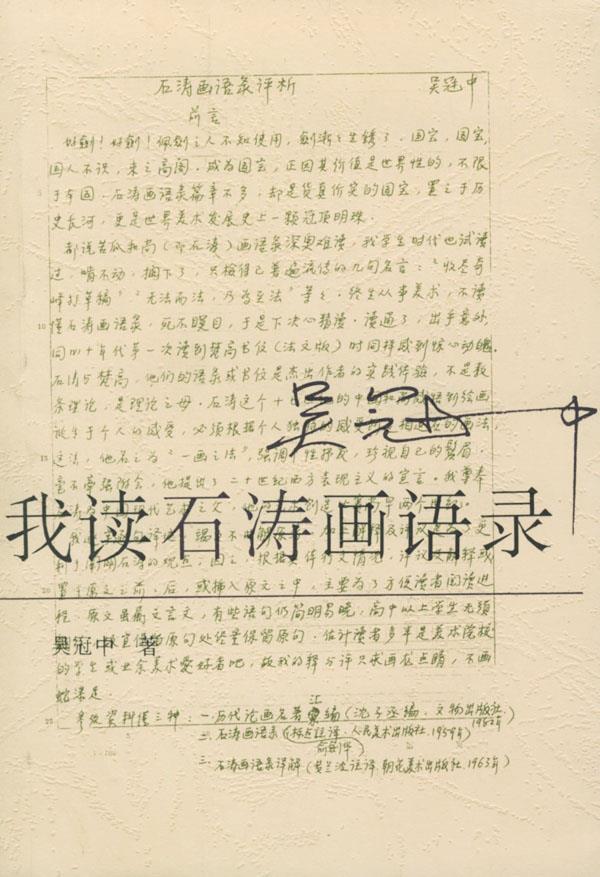 石涛画语录评析 吴冠中
前言
好剑！好剑！佩剑之人不知使用，剑渐之生锈了．国宝，国宝，
国人不识，束之高阁．成为国宝，正因其价值是世界性的，不限
于本国．石涛画语录篇章不多，却是货真价实的国宝，置之于历
史长河，更是世界美术发展史上一颗冠顶明珠．
都说苦瓜和尚（即石涛）画语录深奥难读，我学生时代也试读
过，啃不动，搁下了，只捡得已普遍流传的几句名言：“收尽奇
峰打草稿”“无法而法，乃为至法”等々．终生从事美术，不读
懂石涛画语录，死不瞑目，于是下决心精读．读通了，出乎意外，
同四十年代第一次读到梵高书信（法文版）时同样感到惊心动魄．
石涛与梵高，他们的语录或书信是杰出作者的实践体验，不是教
条理论，是理论之母．石涛这个十 的中 和尚 悟到绘画
诞生于个人的感受，必须根据个人独 的感受 画法，
这法，他名之为“一画之法”，强调 性抒发，珍视自己的鬓眉．
毫不牵强附会，他提出了二十世纪西方表现主义的宣言．我尊奉
吴冠中
我读石涛画语录
利于阐明石涛的观点，因之，根据 行文情况，评议及解释或
置于原文之前、后，或插入原文之中，主要为了方便读者阅读进
程．原文虽属文言文，有些语句仍简明易晓，高中以上学生无须
原句处尽量保留原句．估计读者多半是美术院校
吴冠中 著
的学生或业余美术爱好者吧，故我的释与评只求画龙点睛，不画
蛇添足．
参攷资料惟三种：一．历代论画名著汇编（沈子丞编．文物出版社．1982年
二．石涛画语录（俞剑华标点注译．人民美术出版社．1959年）
三．石涛画语录译解（黄兰波注译．朝花美术出版社．1963年）
5
10
20
25